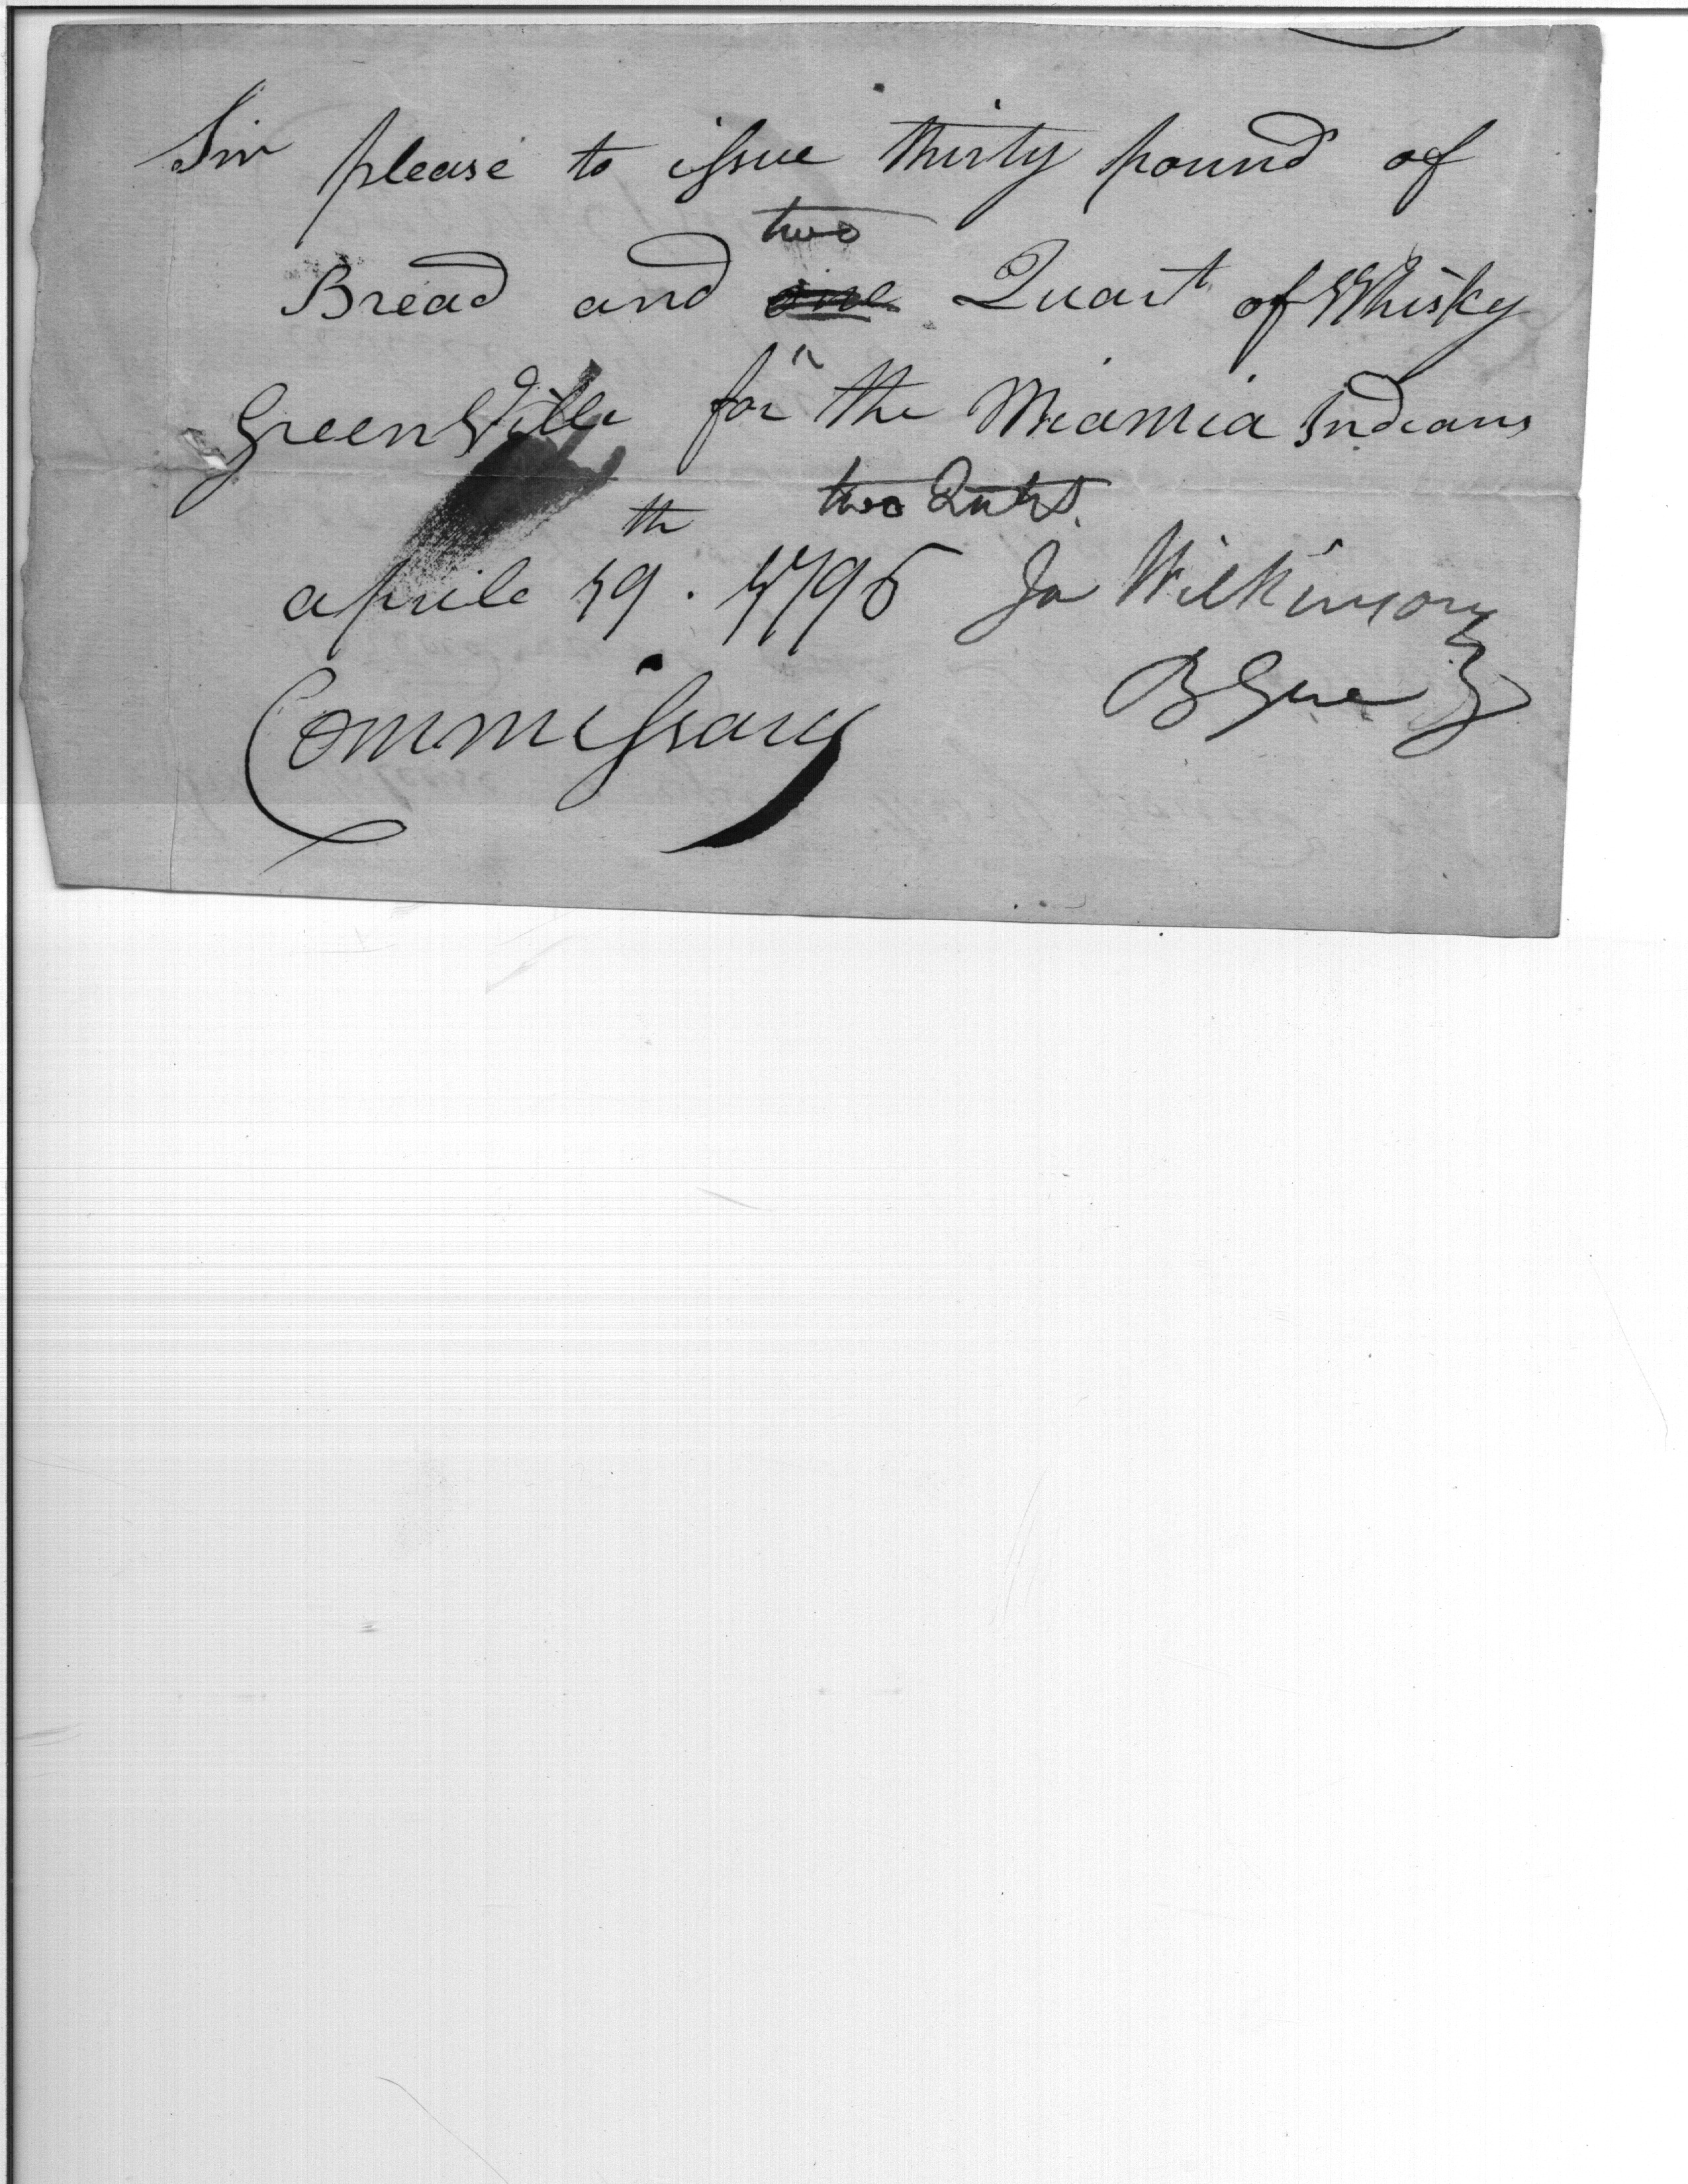 Sir please to issue thirty pound of
two
Bread and one Quart of Whisky
GreenVille for the Miamia Indians
two Quts.
th
aprile 19. 1796 Ja Wilkinson
B Gne
Commissary